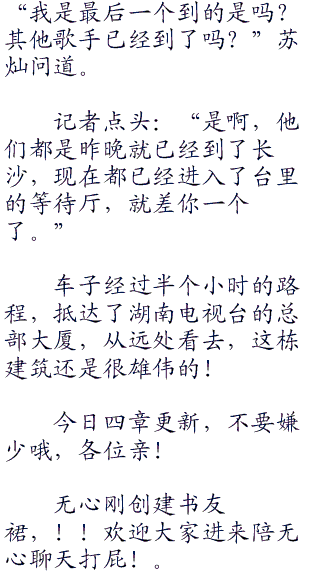 “我是最后一个到的是吗？
其他歌手已经到了吗？”苏
灿问道。
记者点头：“是啊，他
们都是昨晚就已经到了长
沙，现在都已经进入了台里
的等待厅，就差你一个
了。”
车子经过半个小时的路
程，抵达了湖南电视台的总
部大厦，从远处看去，这栋
建筑还是很雄伟的！
今日四章更新，不要嫌
少哦，各位亲！
无心刚创建书友
裙，！！欢迎大家进来陪无
心聊天打屁！。